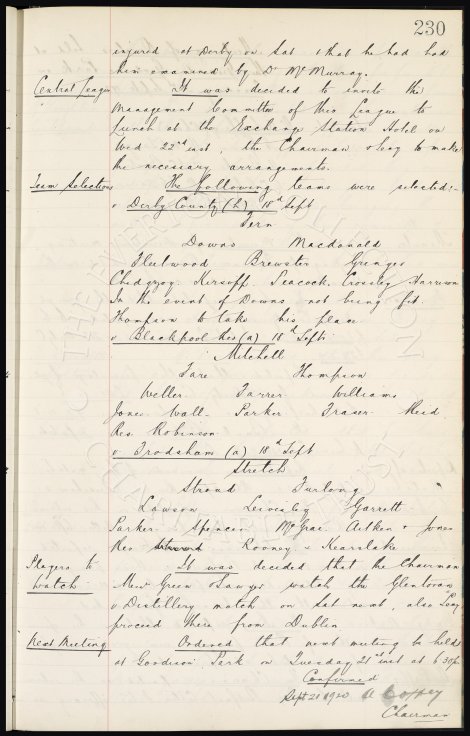 230
injured at Derby on Sat & that he had had
him examined by Dr McMurray.
Central League It was decided to invite the
Management Committee of this League to
Lunch at the Exchange Station Hotel on
Wed 22nd inst, the Chairman & Secy to make
the necessary arrangements.
Team Selections The following teams were selected:-
v Derby County (h) 18th Sept
Fern
Downs Macdonald
Fleetwood Brewster Grenyer
Chedgzoy Kirsopp Peacock Crossley Harrison
In the event of Downs not being fit
Thompson to take his place
v Blackpool Res (a) 18th Sept
Mitchell
Tare Thompson
Weller Farrer Williams
Jones Wall Parker Fraser Reid
Res Robinson
v Frodsham (a) 18th Sept
Stretch
Stroud Furlong
Lawson Leivesley Garrett
Parker Spencer McGrae Aitken & Jones
Res Rooney & Kearslake
Players to It was decided that the Chairman
Watch Messrs Green & Sawyer watch the Glentoran
v Distillery match on Sat next, also Secy
proceed there from Dublin
Next Meeting Ordered that next meeting be held
at Goodison Park on Tuesday 21st inst at 6.30pm
Confirmed
Sept 21 1920 A Coffey
Chairman